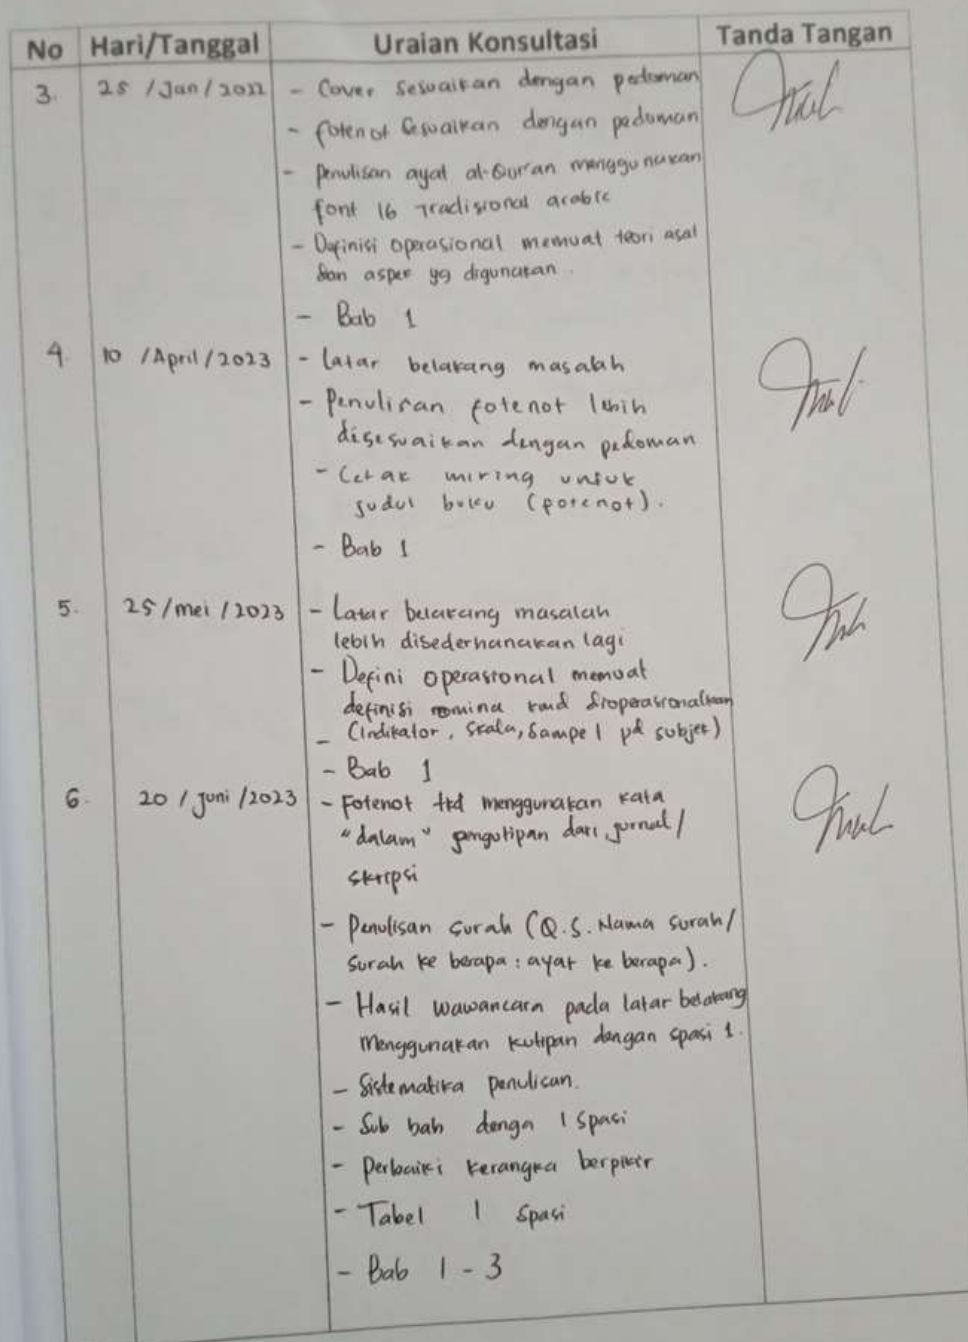 No Hari/Tanggal Uraian Konsultasi Tanda Tangan
3. 25 /Jan/2022 - Cover Sesuaikan dengan pedoman
- fotenot Sesuaikan dengan pedoman
- Penulisan ayat al-Qur'an menggunakan
font 16 Tradisional arabic
- Definisi operasional memuat teori asal
dan aspek yg digunakan.
- Bab 1
4. 10 /April/2023 - Latar belakang masalah
- Penulisan fotenot lebih
disesuaikan dengan pedoman
- Cetak miring untuk
judul buku (potenot).
- Bab 1
5. 25/mei/2023 - Latar belakang masalah
lebih disederhanakan lagi
- Defini operasional memuat
definisi dioperasionalkan
- (Indikator, Skala, Sampel pd subjek)
- Bab 1
6. 20 / Juni /2023 - Fotenot tkd menggunakan kata
"dalam" pengutipan dari jurnal/
skripsi
- Penulisan surah (Q.S. Nama surah/
surah ke berapa : ayat ke berapa).
- Hasil wawancara pada latar belakang
menggunakan kutipan dengan spasi 1.
- Sistematika penulisan.
- Sub bab denga 1 spasi
- Perbaiki kerangka berpikir
- Tabel 1 Spasi
- Bab 1 - 3